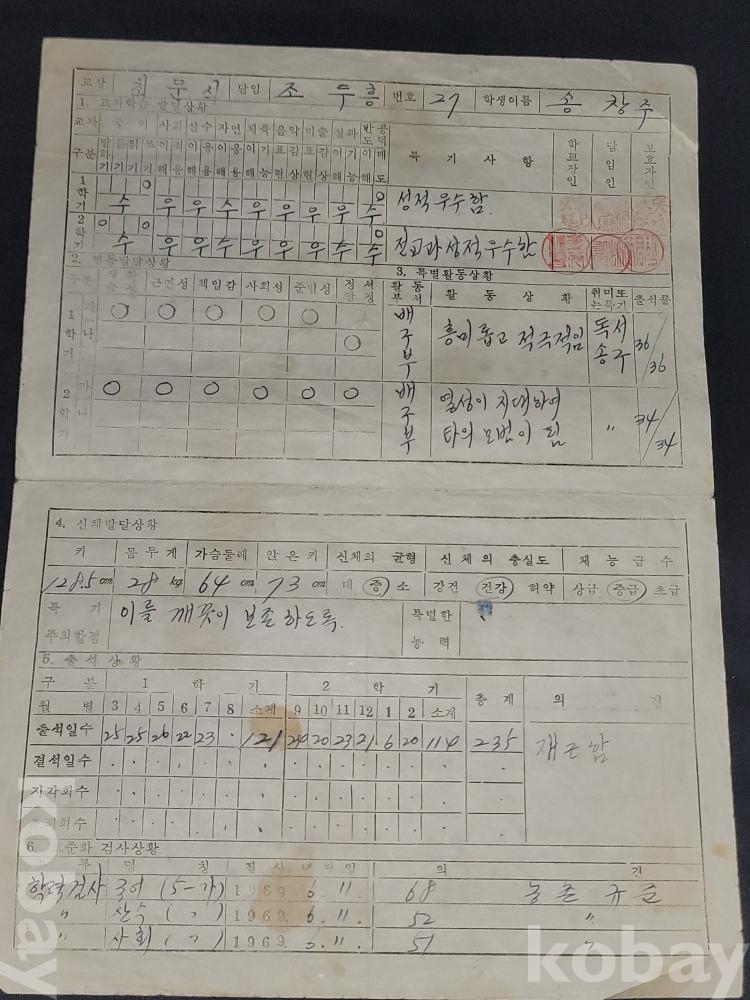 교장 최문신 담임 조두흥 번호 27 학생이름 송창주
1. 교과학습 발달상황
교과 국어 사회 산수 자연 체육 음악 미술 실과 반공도덕
구분 특기사항 학교장인 담임인 보호자인
1학기 수 우 우 우 우 우 우 우 수 성적 우수함.
2학기 수 우 우 우 우 우 우 수 수 전교과 성적 우수함
2. 행동발달상황
근면성 책임감 사회성 준법성 정서안정
3. 특별활동상황
활동부서 활동상황 취미또는특기 출석률
1학기 가 ○ ○ ○ ○ ○ 배구부 흥미롭고 적극적임 독서 송구 36/36
나 ○
2학기 가 ○ ○ ○ ○ ○ ○ 배구부 열성이 지대하여 타의 모범이 됨 〃 34/34
나
4. 신체발달상황
키 몸무게 가슴둘레 앉은키 신체의 균형 신체의 충실도 재능급수
128.5 cm 28 kg 64 cm 73 cm 대 중 소 강건 건강 허약 상급 중급 초급
특기 주의할점 이를 깨끗이 보존하도록. 특별한 능력
5. 출석상황
구분 1학기 2학기 총계 의견
월별 3 4 5 6 7 8 소계 9 10 11 12 1 2 소계
출석일수 25 25 26 22 23 · 121 24 20 23 21 6 20 114 235 개근함
결석일수
지각회수
6. 표준화 검사상황
명칭 검사년월일 의견
학력검사 국어 (5-가) 1969. 6. 11. 68 농촌 규준
〃 산수 (〃) 1969. 6. 11. 52 〃
〃 사회 (〃) 1969. 6. 11. 51 〃
kobay
kobay